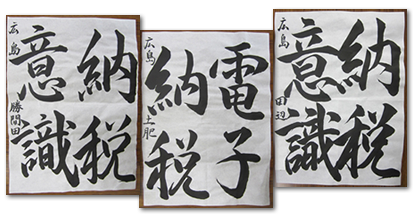 納税
意識
広島 勝間田
電子
納税
広島 土肥
納税
意識
広島 田辺